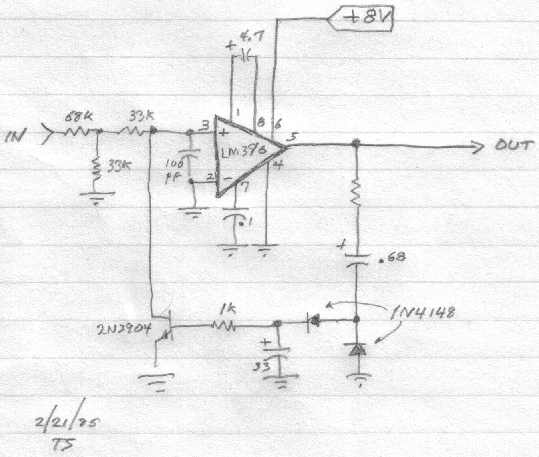 +8V
+ 4.7
1
8 6
68K
33K
IN
3
+
5
OUT
33K
100
pF
2
-
7
4
.1
+
.68
1N4148
1K
2N3904
+
33
2/21/85
TS